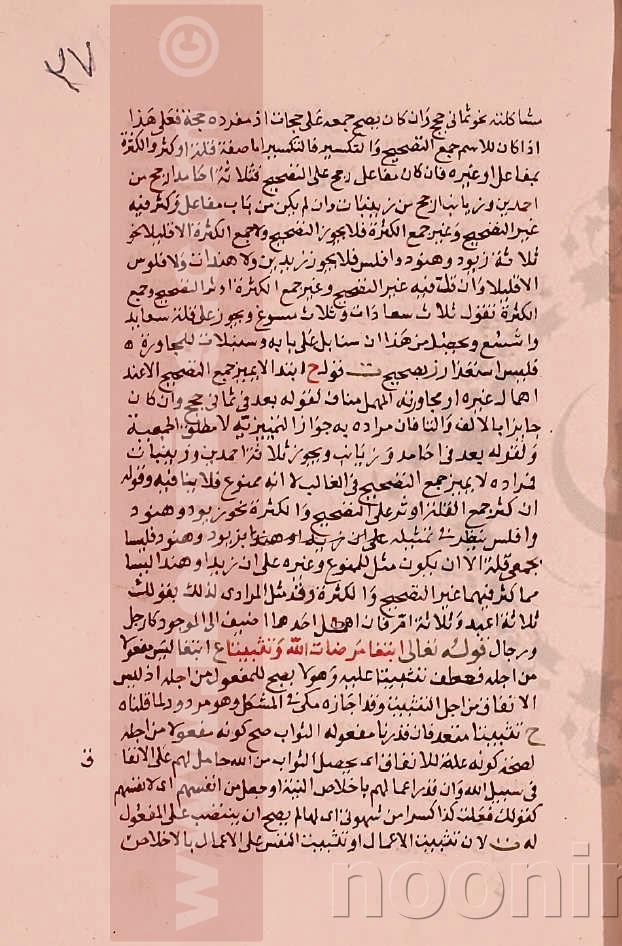 ٢٧
مشاكلته نحو ثماني حجج وان كان يصح جمعه على حجات اذ مفرده حجة فعلى هذا
اذا كان للاسم جمع التصحيح والتكسير فالتكسير اما صفة قلة او كثرة والكثرة
بمفاعل او غيره فان كان مفاعل رجح على التصحيح فثلاثة احامد ارجح من
احمدين وزيانب ارجح من زينبات وان لم يكن من باب مفاعل وكثر فيه
غير التصحيح وغير جمع الكثرة فلا يجوز التصحيح ولا جمع الكثرة الا قليلا نحو
ثلاثة زيود وهنود وافلس فلا يجوز زيدين ولا هندات ولا فلوس
الا قليلا وان قل فيه غير التصحيح وغير جمع الكثرة اوثر التصحيح وجمع
الكثرة تقول ثلاث سعادات وثلاث شسوع ويجوز على قلة سعايد
واشسع ويحصل من هذا ان سنابل على بابه وسنبلات للمجاورة
فليس استعذار بصحيح ت قوله ح ابتدا لا يميز جمع التصحيح الا عند
اهمال غيره او مجاورته المهمل مناف لقوله بعد في ثماني حجج وان كان
جايزا بالالف والتا فان مراده به جواز التمييزية لا مطلق الجمعية
ولقوله بعد في احامد وزيانب ويجوز ثلاثة احمدين وزينبات
فمراده لا يميز جمع التصحيح في الغالب لا انه ممنوع فلا ينافيه وقوله
ان كثر جمع القلة اوثر على التصحيح والكثرة نحو زيود وهنود
وافلس ينظر في تمثيله على ان زيدا وهندا بزيود وهنود فليسا
بجمعي قلة الا ان يكون مثل للممنوع وغيره على ان زيدا وهندا ليسا
مما كثر فيهما غير التصحيح والكثرة وقد مثل المرادي لذلك بقولك
ثلاثة اعبد وثلاثة افرق فان اهمل احدهما اضيف الى الموجود كارجل
ورجال قوله تعالى ابتغا مرضات الله وتثبيتا ع ابتغا ليس مفعولا
من اجله فعطف تثبيتا عليه وهو لا يصح للمفعول من اجله اذ ليس
الانفاق من اجل التثبيت وقد اجازه مكي في المشكل وهو مردود لما قلناه
ح تثبيتا متعد فان قدرنا مفعوله الثواب صح كونه مفعولا من اجله
لصحة كونه علة للانفاق اى يحصل الثواب من الله حامل لهم على الانفا
ق
في سبيل الله وان قدر اعمالهم باخلاص النية او حصل من انفسهم اى لانفسهم
كقولك فعلت كذا كسرا من شهوتي اى لها لم يصح ان ينتصب على المفعول
له ت لان تثبيت الاعمال او تثبيت النفس على الاعمال بالاخلاص
www.
©
noonin